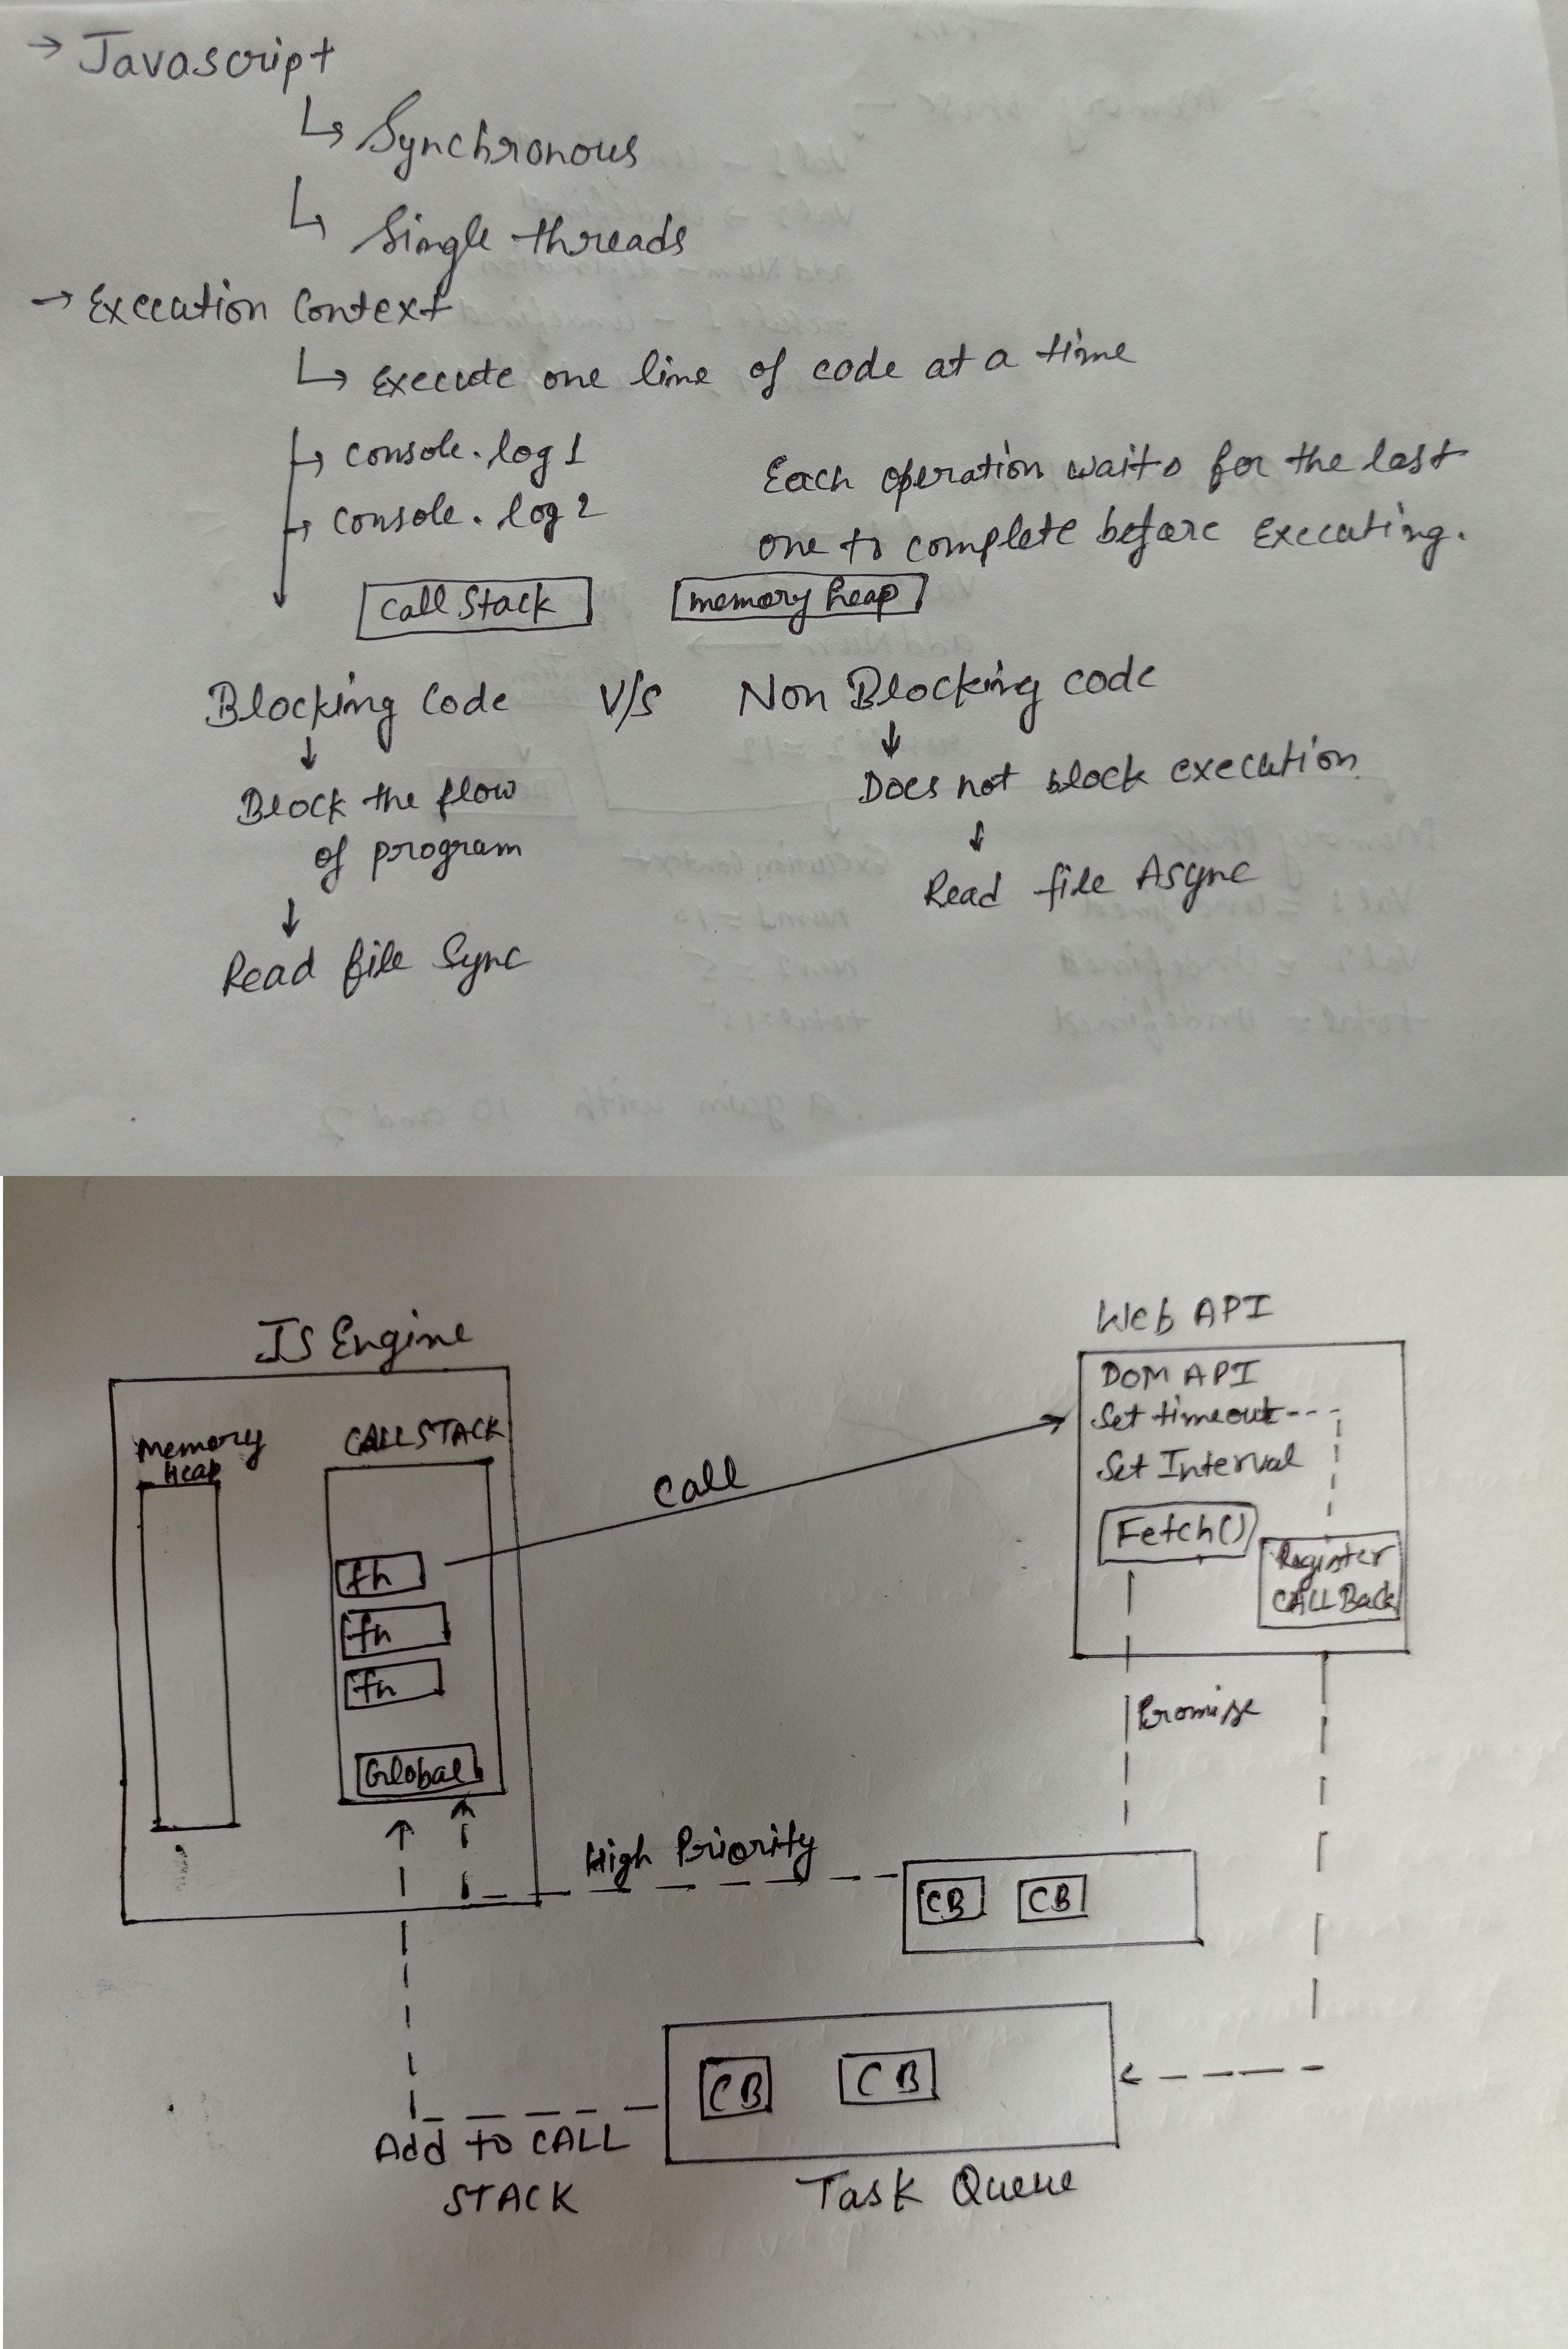 → Javascript
↳ Synchronous
↳ Single threads
→ Execution Context
↳ Execute one line of code at a time
↳ console.log 1
↳ console.log 2
Each operation waits for the last
one to complete before Executing.
Call Stack
memory heap
Blocking Code V/S Non Blocking code
↓
Block the flow
of program
↓
Read file Sync
↓
Does not block execution
↓
Read file Async
JS Engine
Memory
Heap
CALL STACK
fn
fn
fn
Global
Call
Web API
DOM API
Set timeout
Set Interval
Fetch()
Register
CALL Back
Promise
High Priority
CB CB
CB CB
Add to CALL
STACK
Task Queue